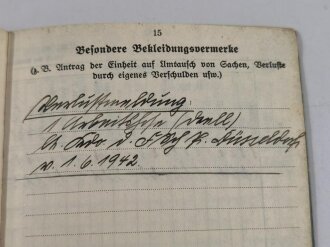 15
Besondere Bekleidungsvermerke
(z. B. Antrag der Einheit auf Umtausch von Sachen, Verluste
durch eigenes Verschulden usw.)
Verlustmeldung
1 Arbeitshose (Drell)
Düsseldorf
v. 1.6.1942